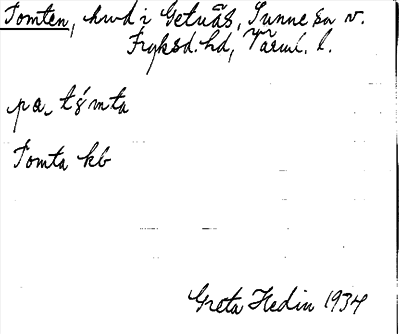 Tomten, hmd i Getnäs, Sunne sn v.
Fryksd. hd, Värml. l.
pa tǿmta
Tomta kb
Greta Hedin 1934